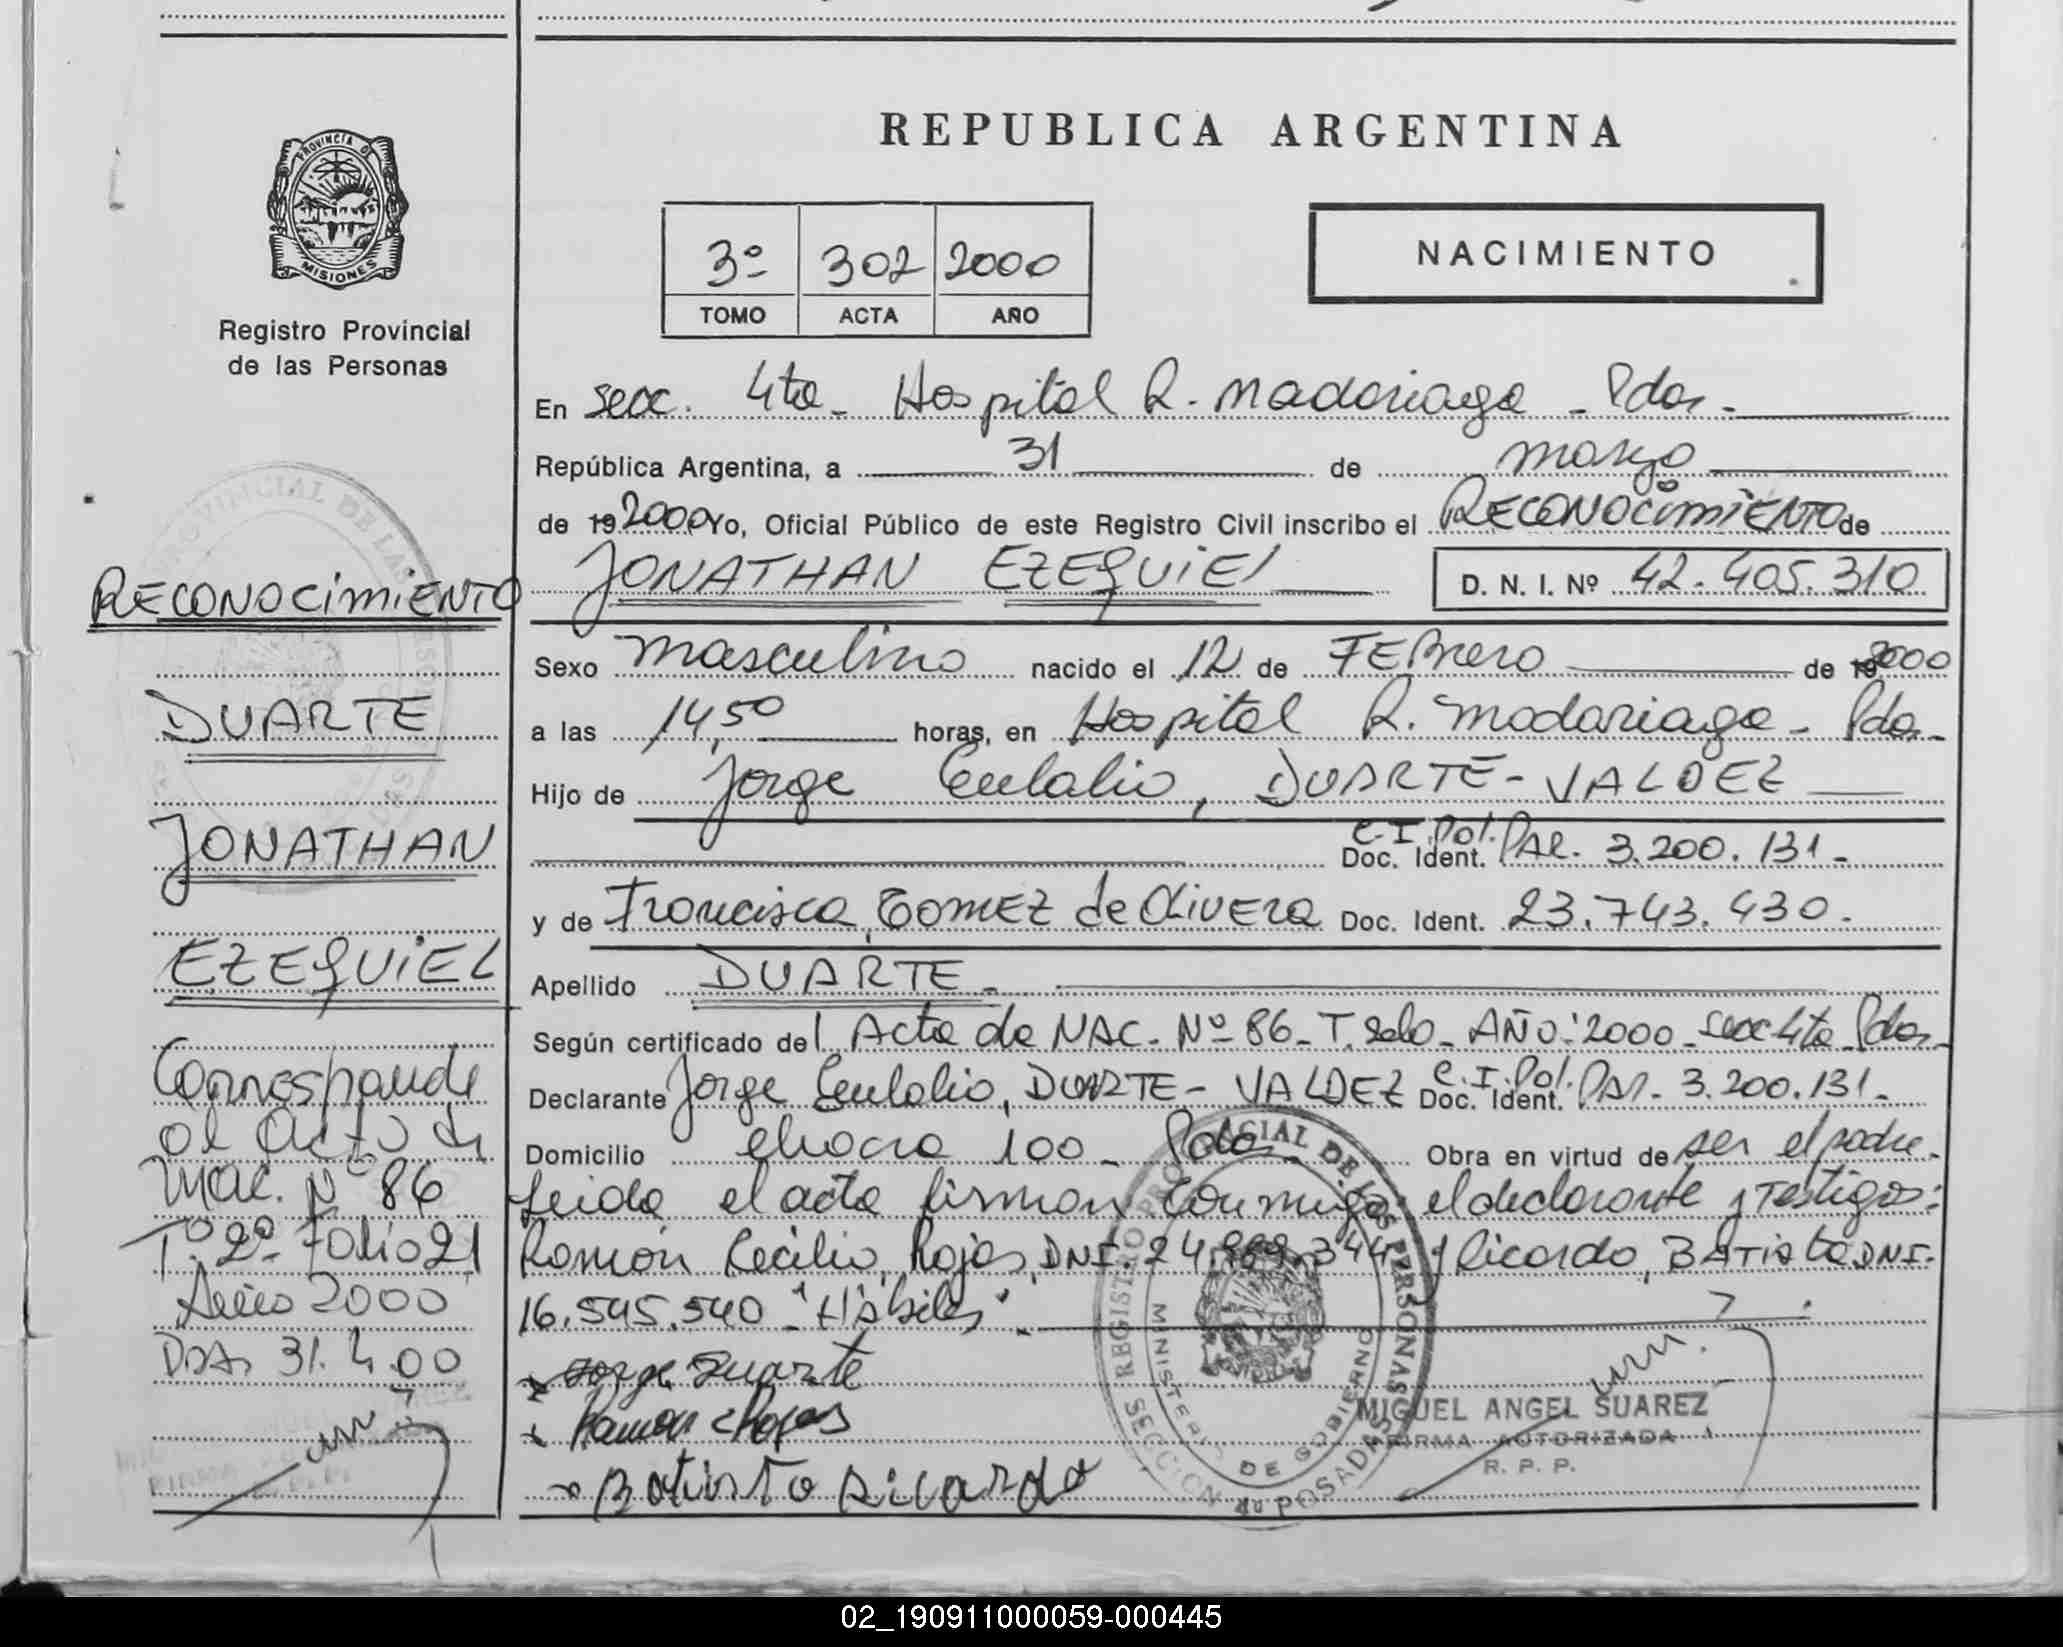 PROVINCIA DE
MISIONES
Registro Provincial
de las Personas
RECONOCIMIENTO
DUARTE
JONATHAN
EZEQUIEL
Corresponde
al Acta de
Nac. Nº 86
Tº 2º Folio 21
Año 2000
Pdas. 31.4.00
REPUBLICA ARGENTINA
3º 302 2000
TOMO ACTA AÑO
NACIMIENTO
En secc. 4ta - Hospital R. Madariaga - Pdas -
República Argentina, a 31 de marzo
de 19 2000 Yo, Oficial Público de este Registro Civil inscribo el RECONOCIMIENTO de
JONATHAN EZEQUIEL D. N. I. Nº 42.405.310
Sexo masculino nacido el 12 de FEBrero de 19 2000
a las 14,50 horas, en Hospital R. Madariaga - Pdas -
Hijo de Jorge Eulalio, DUARTE - VALDEZ
C.I. Pol.
Doc. Ident. PAR. 3.200.131 -
y de Francisca, GOMEZ de Olivera Doc. Ident. 23.743.430 -
Apellido DUARTE -
Según certificado del Acta de NAC. Nº 86 - T. 2do - AÑO: 2000 - secc 4ta Pdas -
Declarante Jorge Eulalio, DUARTE - VALDEZ C.I. Pol. Doc. Ident. PAR. 3.200.131 -
Domicilio chacra 100 - Pdas - Obra en virtud de ser el padre -
Leida el acta firman conmigo el declarante y Testigos:
Ramón Cecilio, Rojas, DNI. 24.989.344 y Ricardo, BATista DNI.
16.545.540 - "Hábiles" -
x Jorge Duarte
x Ramon c Rojas
x Batista Ricardo
REGISTRO PROVINCIAL DE LAS PERSONAS
MINISTERIO DE GOBIERNO
SECCION 4ta POSADAS
MIGUEL ANGEL SUAREZ
FIRMA AUTORIZADA
R. P. P.
02_190911000059-000445